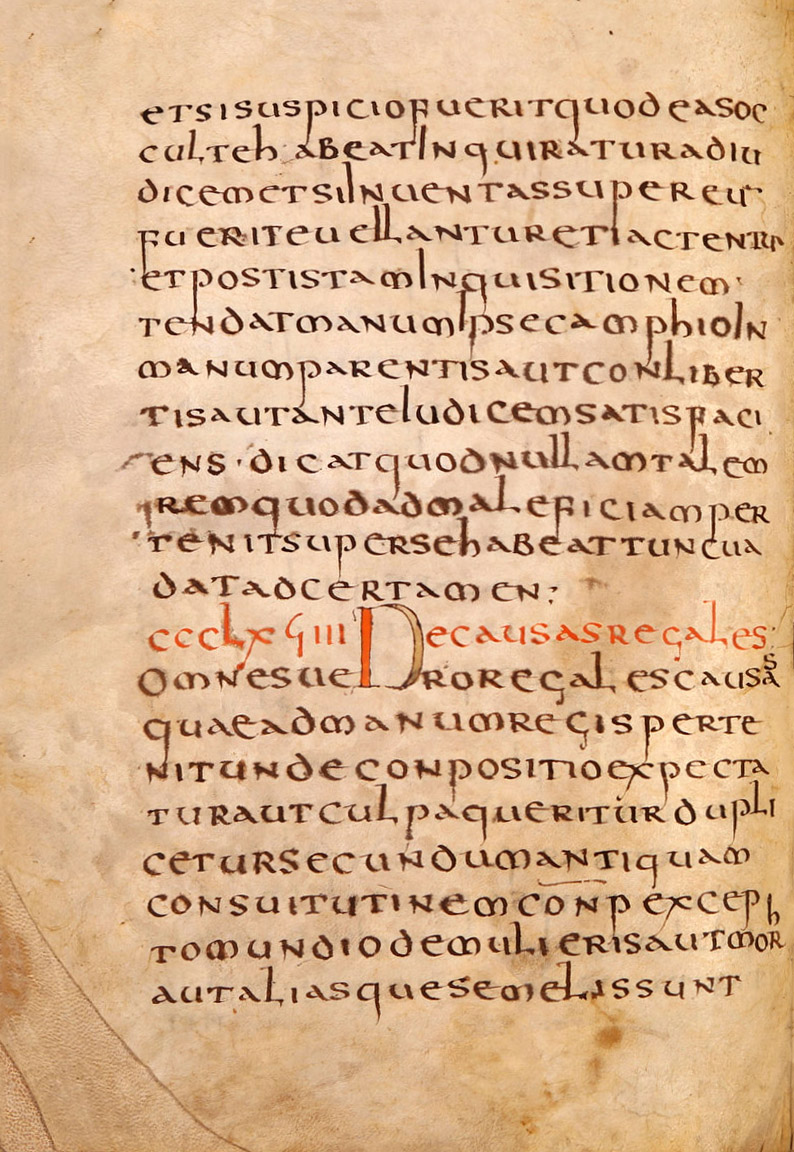 etsisuspiciofueritquodeasoc
culteh abeatinquiraturadiu
dicemetsiinuentassupereu
fueriteuellanturetiactentur
etpostistaminquisitionem
tendatmanumipsecamphioin
manumparentisautconliber
tisautanteiudicemsatisfaci
ens · dicatquodnullamtalem
remquodadmaleficiamper
tenitsupersehabeattuncua
datadcertamen:
ccclxviiii Decausasregales:
Omnesueroregalescausas
quaeadmanumregisperte
nitundeconpositioexpecta
turautculpaqueriturdupli
ceturSecundumantiquam
consuitutinemconp excep
tomundiodemulierisautmor
autaliasquesemelissunt